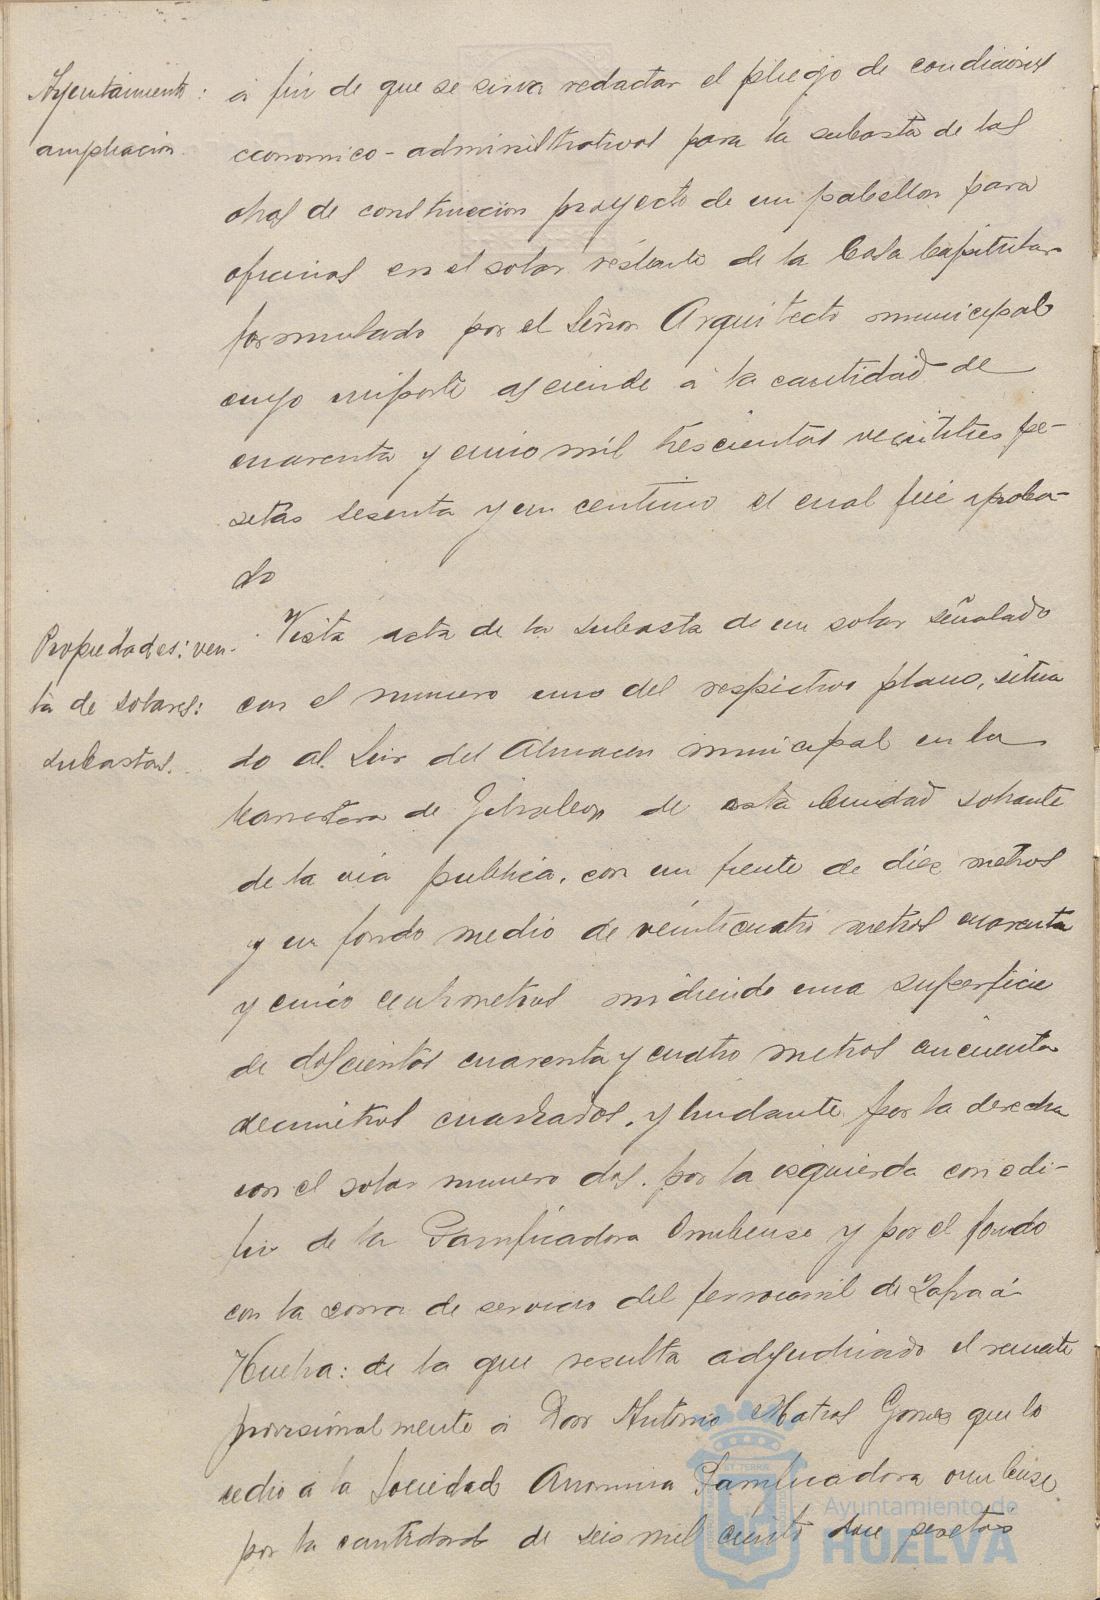 Ayuntamiento:
ampliación.
á fin de que se sirva redactar el pliego de condiciones
economico-administrativas para la subasta de las
obras de construccion proyecto de un pabellon para
oficinas en el solar restante de la Casa Capitular
formulado por el Señor Arquitecto municipal
cuyo importe asciende á la cantidad de
cuarenta y cinco mil trescientas veintitres pe-
setas sesenta y un centimo el cual fué aproba-
do
Propiedades: ven-
ta de solares:
subastas.
Vista acta de la subasta de un solar señalado
con el numero uno del respectivo plano, situa
do al Sur del Almacen municipal en la
Carretera de Gibraleon de esta Ciudad sobrante
de la via publica, con un frente de diez metros
y un fondo medio de veinticuatro metros cuarenta
y cinco centimetros midiendo una superficie
de doscientos cuarenta y cuatro metros cincuenta
decimetros cuadrados, y lindante por la derecha
con el solar numero dos, por la izquierda con edi-
ficio de la Panificadora Onubense y por el fondo
con la zona de servicio del ferrocarril de Zafra á
Huelva: de la que resulta adjudicado el remate
provisionalmente á Don Antonio Matos Gomez que lo
cedio á la Sociedad Anonima Panificadora onubense
por la cantidad de seis mil ciento doce pesetas
Ayuntamiento de
HUELVA